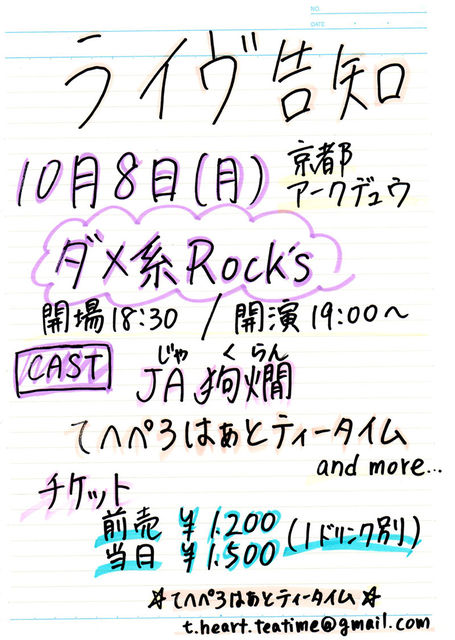 NO.
DATE
ライヴ告知
10月8日(月) 京都
アークデュウ
ダメ系Rock's
開場18:30 / 開演19:00〜
じゃ く らん
CAST JA狗爛
てへぺろはぁとティータイム
and more...
チケット
前売 ¥1.200
当日 ¥1.500 (1ドリンク別)
☆てへぺろはぁとティータイム☆
t.heart.teatime@gmail.com